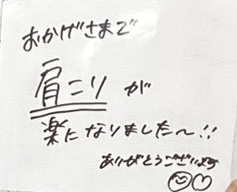 おかげさまで
肩こりが
楽になりました〜!!
ありがとうございます